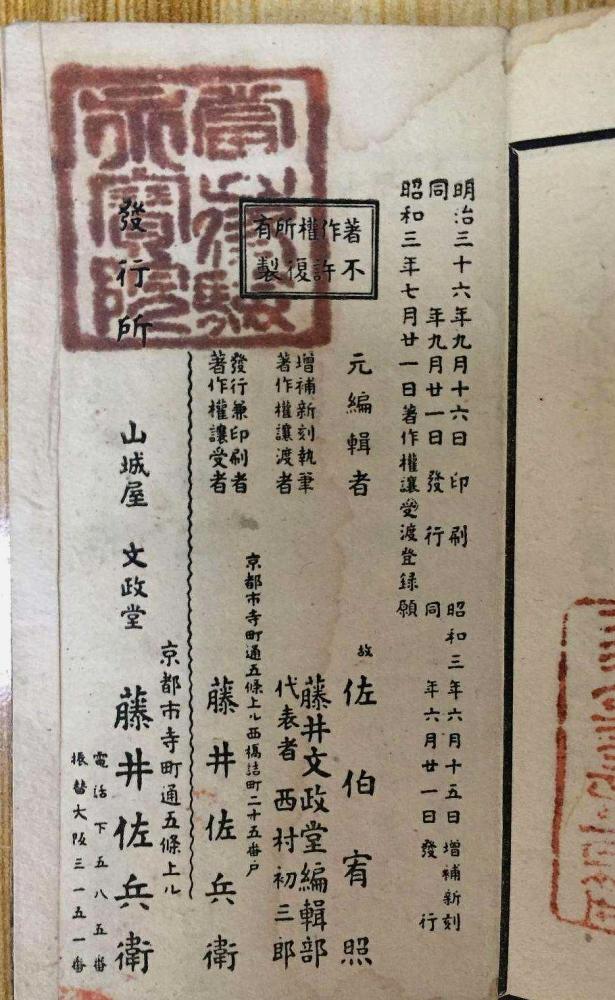 明治三十六年九月十六日 印刷 昭和三年六月十五日 增補新刻
同 年九月廿一日 發行 同 年六月廿一日 發行
昭和三年七月廿一日著作權讓受渡登録願
著作權所有
不許復製
元編輯者 故 佐伯宥照
增補新刻執筆 藤井文政堂編輯部
著作權讓渡者 代表者 西村初三郎
京都市寺町通五條上ル西橋詰町二十五番戸
發行兼印刷者
著作權讓受者 藤井佐兵衛
京都市寺町通五條上ル
發行所 山城屋 文政堂 藤井佐兵衛
電話下五八五番
振替大阪三一五一番